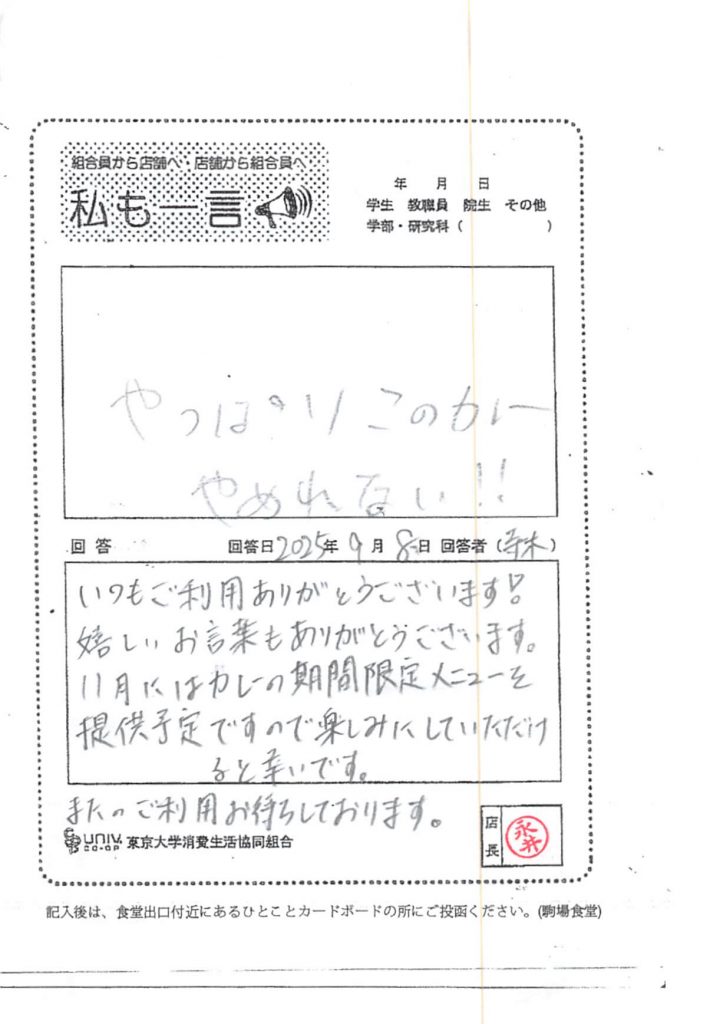 組合員から店舗へ・店舗から組合員へ
私も一言
年 月 日
学生 教職員 院生 その他
学部・研究科( )
やっぱりこのカレー
やめれない!!
回答 回答日2025年9月8日 回答者(寺木)
いつもご利用ありがとうございます!
嬉しいお言葉もありがとうございます。
11月にはカレーの期間限定メニューを
提供予定ですので楽しみにしていただけ
ると幸いです。
またのご利用お待ちしております。
UNIV. CO-OP 東京大学消費生活協同組合
店長 永井
記入後は、食堂出口付近にあるひとことカードボードの所にご投函ください。(駒場食堂)